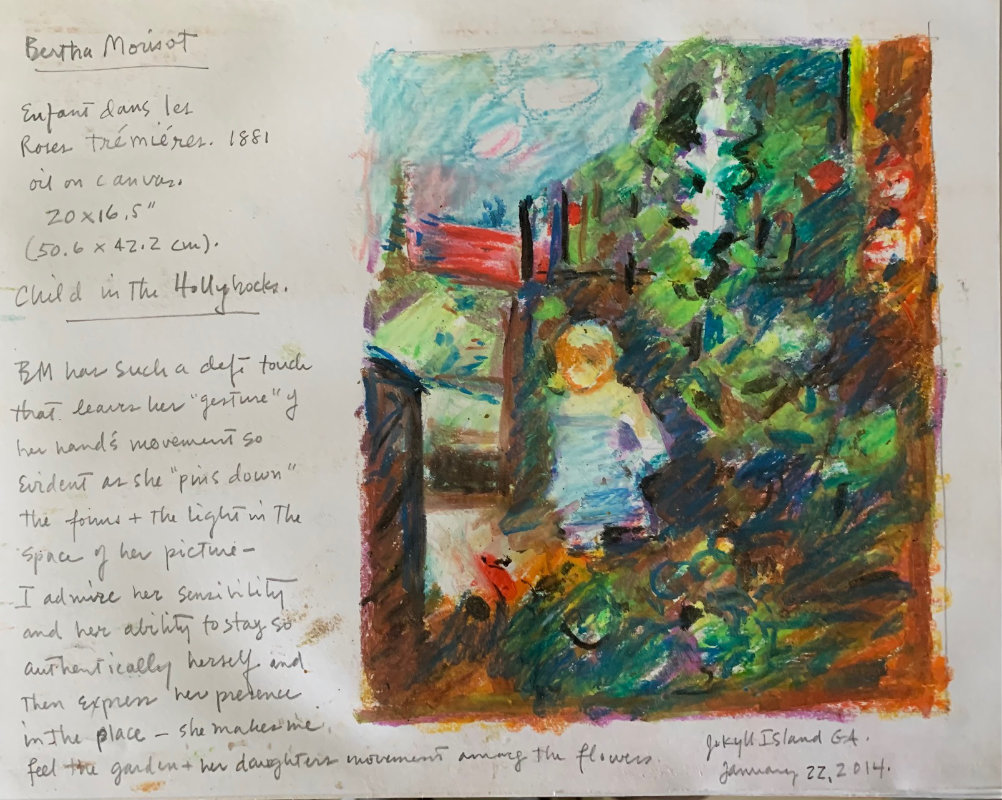 Bertha Morisot
Enfant dans les
Roses trémiéres. 1881
oil on canvas.
20x16.5"
(50.6 x 42.2 cm).
Child in the Hollyhocks.
BM has such a deft touch
that leaves her "gesture" of
her hand's movement so
evident as she "pins down"
the forms + the light in the
space of her picture –
I admire her sensibility
and her ability to stay so
authentically herself and
then express her presence
in the place – she makes me
feel the garden + her daughters movement among the flowers.
Jekyll Island GA.
January 22, 2014.